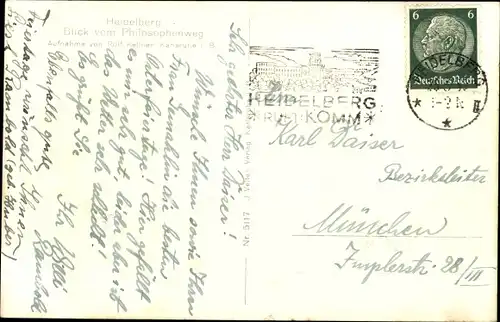 Heidelberg
Blick vom Philosophenweg
Aufnahme von Rolf Kellner Karlsruhe i. B.
Sehr geehrter Herr Daiser!
Wünsche Ihnen sowie Ihrer
Frau Gemahlin die besten
Osterfeiertage! Hier gefällt
es mir sehr gut leider aber ist
das Wetter sehr
Es grüßt Sie
Ihr
Ebenfalls gute
Feiertage wünscht Ihnen
(geb. Huber)
Nr. 2117
HEIDELBERG
RUFT KOMM
6 6
Deutsches Reich
HEIDELBERG
Karl Daiser
Bezirksleiter
München
Implerstr. 28/III